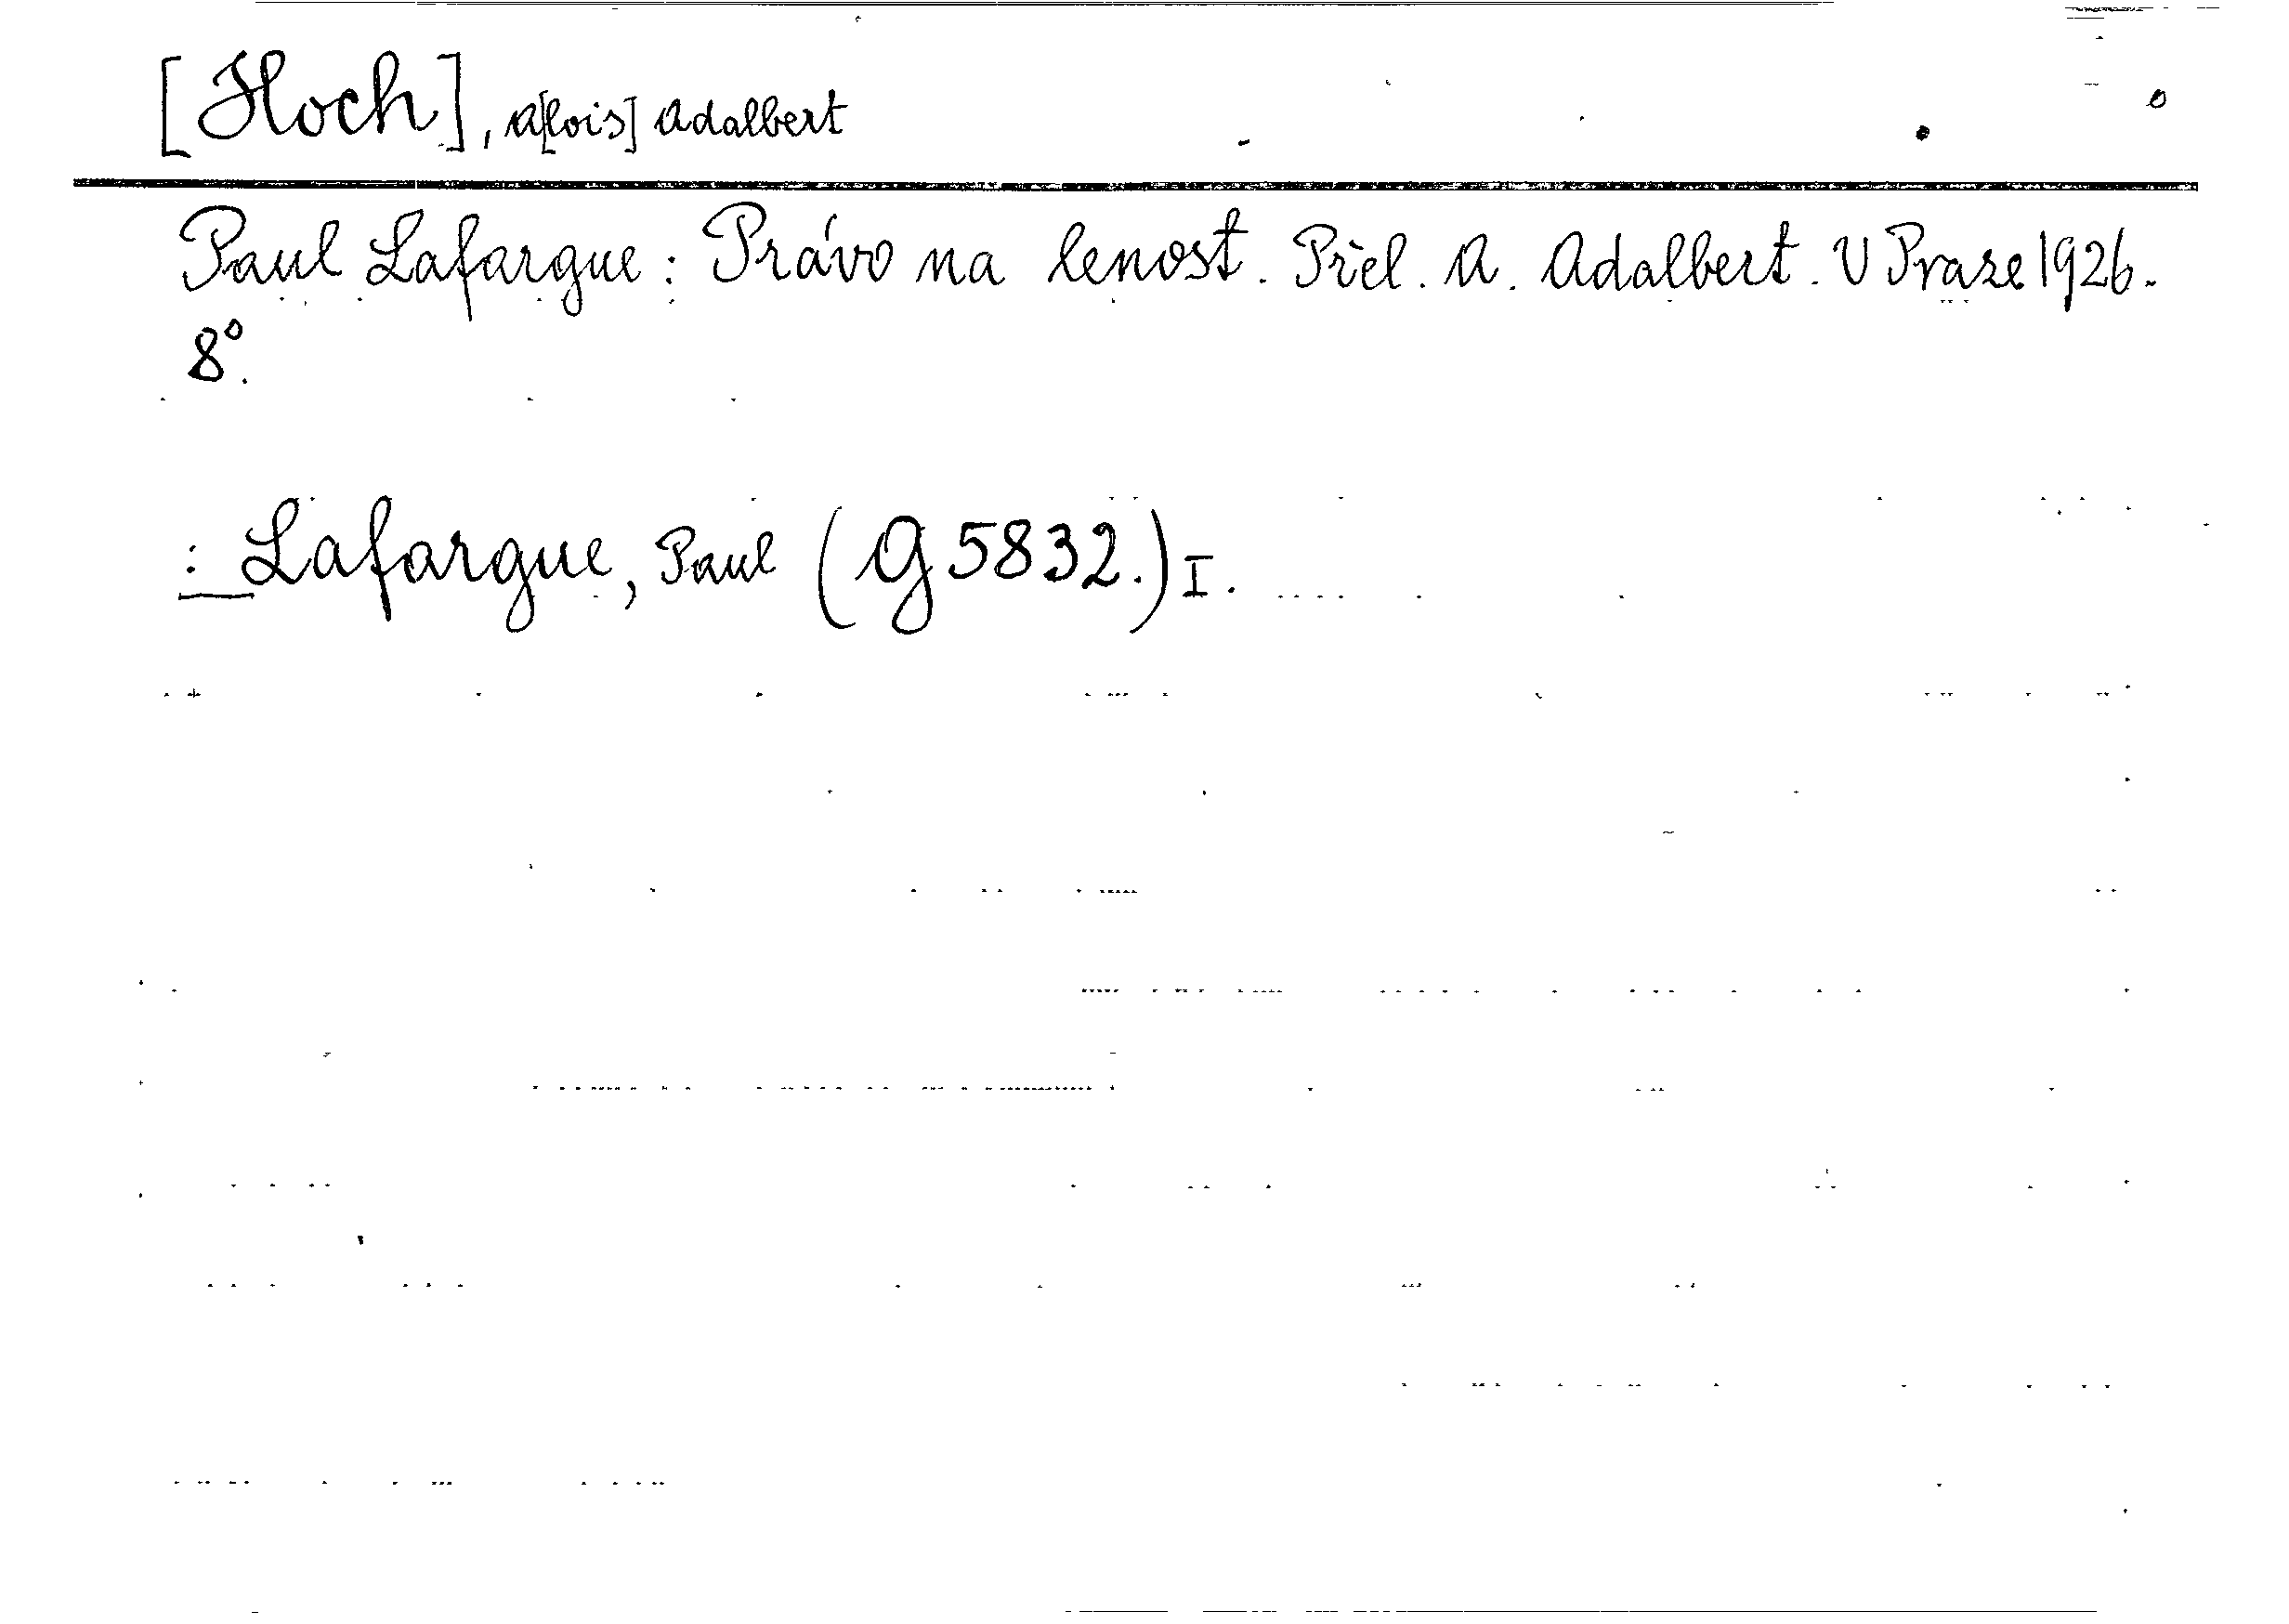 [Hoch], A[lois] Adalbert
Paul Lafargue: Právo na lenost. Přel. A. Adalbert. V Praze 1926.
8°.
: Lafargue, Paul (G 5832.) I.